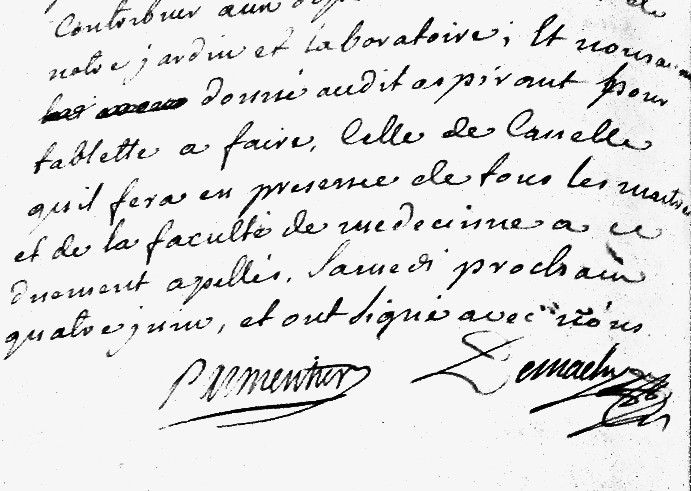 Contribuer aux dep
notre jardin et laboratoire; Et nous a
donné audit aspirant pour
tablette a faire, Celle de Canelle
qu'il fera en presence de tous les maitres
et de la faculté de medecinne a ce
duement apellés, Samedi prochain
quatre juin, et ont signé avec nous
Parmentier